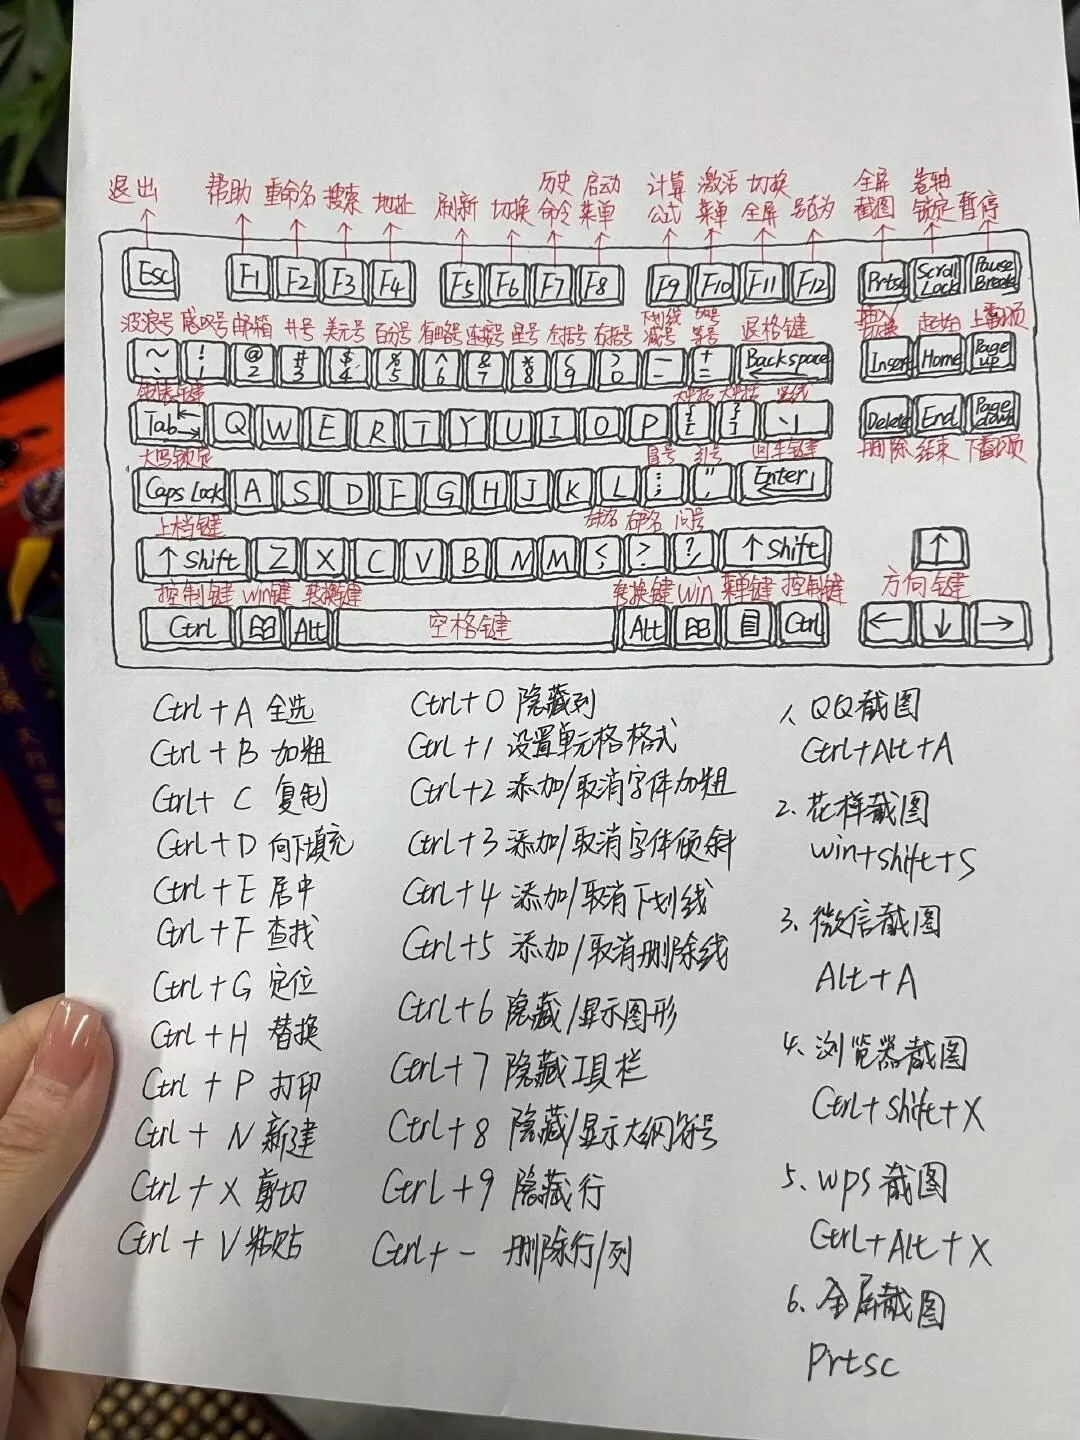 历史 启动 计算 激活 切换 全屏 卷轴
退出 帮助 重命名 搜索 地址 刷新 切换 命令 菜单 公式 菜单 全屏 另存为 截图 锁定 暂停
Esc F1 F2 F3 F4 F5 F6 F7 F8 F9 F10 F11 F12 Prtsc Scroll Lock Pause Break
下划线 加号 插入
波浪号 感叹号 邮箱 井号 美元号 百分号 省略号 连接号 星号 左括号 右括号 减号 等号 退格键 起始 上翻页
~ ` ! 1 @ 2 # 3 $ 4 % 5 ^ 6 & 7 * 8 ( 9 ) 0 - - + = Backspace Insert Home Page up
大括 大括 竖线
Tab Q W E R T Y U I O P { [ } ] \ | Delete End Page down
大写锁定 冒号 引号 回车键 删除 结束 下翻页
Caps Lock A S D F G H J K L : ; " ' Enter
上档键 问号
↑ Shift Z X C V B N M < , > . ? / ↑ Shift ↑
控制键 win键 变换键 变换键 win 菜单键 控制键 方向键
Ctrl Alt 空格键 Alt Ctrl ← ↓ →
Ctrl + A 全选
Ctrl + B 加粗
Ctrl + C 复制
Ctrl + D 向下填充
Ctrl + E 居中
Ctrl + F 查找
Ctrl + G 定位
Ctrl + H 替换
Ctrl + P 打印
Ctrl + N 新建
Ctrl + X 剪切
Ctrl + V 粘贴
Ctrl+0 隐藏列
Ctrl+1 设置单元格格式
Ctrl+2 添加/取消字体加粗
Ctrl+3 添加/取消字体倾斜
Ctrl+4 添加/取消下划线
Ctrl+5 添加/取消删除线
Ctrl+6 隐藏/显示图形
Ctrl+7 隐藏工具栏
Ctrl+8 隐藏/显示大纲符号
Ctrl+9 隐藏行
Ctrl+- 删除行/列
1、QQ截图
Ctrl+Alt+A
2、花样截图
win+shift+S
3、微信截图
Alt+A
4、浏览器截图
Ctrl+shift+X
5、WPS截图
Ctrl+Alt+X
6、全屏截图
Prtsc